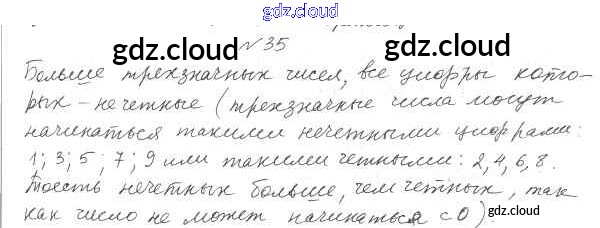 gdz.cloud
№35
gdz.cloud gdz.cloud
Больше трехзначных чисел, все цифры кото-
рых - нечетные (трехзначные числа могут
начинаться такими нечетными цифрами:
1; 3; 5; 7; 9 или такими четными: 2, 4, 6, 8.
Тоесть нечетных больше, чем четных, так
как число не может начинаться с 0).
gdz.cloud gdz.cloud